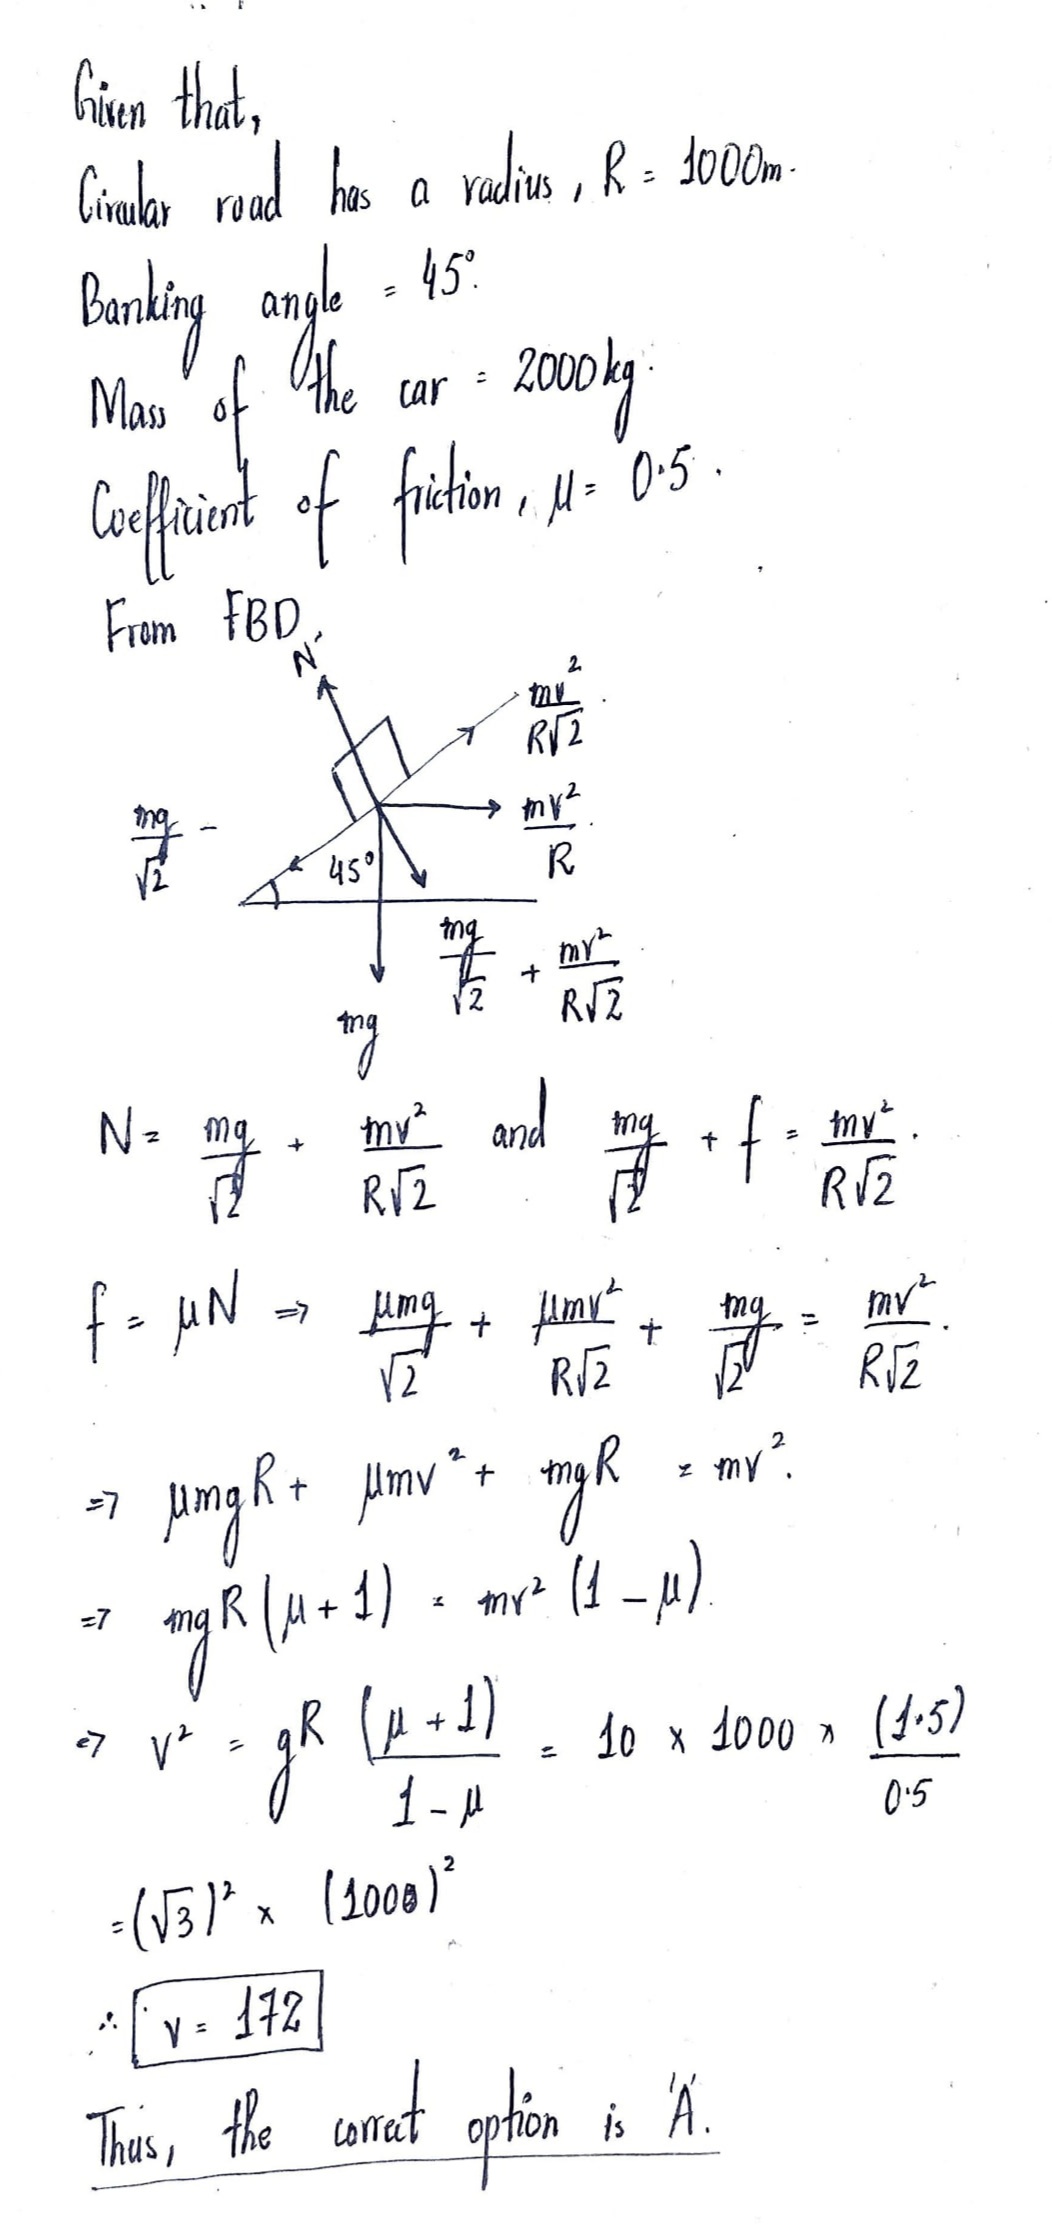 Given that,
Circular road has a radius, R = 1000m.
Banking angle = 45°.
Mass of the car = 2000kg.
Coefficient of friction, μ = 0.5.
From FBD,
N
mv²/R√2
mg/√2
mv²/R
45°
mg/√2 + mv²/R√2
mg
N = mg/√2 + mv²/R√2 and mg/√2 + f = mv²/R√2.
f = μN ⇒ μmg/√2 + μmv²/R√2 + mg/√2 = mv²/R√2.
⇒ μmgR + μmv² + mgR = mv².
⇒ mgR (μ + 1) = mv² (1 - μ).
⇒ v² = gR (μ + 1)/1 - μ = 10 x 1000 x (1.5)/0.5
= (√3)² x (1000)²
∴ v = 172
Thus, the correct option is 'A'.